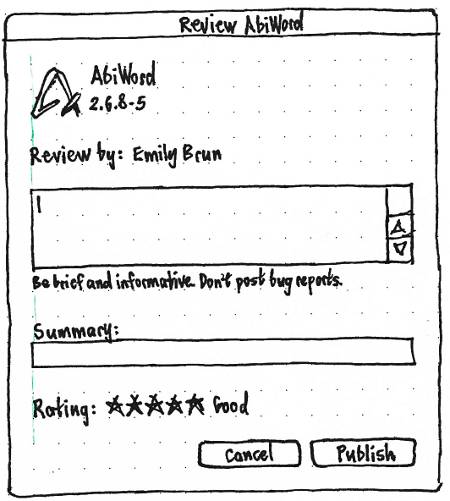 Review AbiWord
AbiWord
2.6.8-5
Review by: Emily Brun
Be brief and informative. Don't post bug reports.
Summary:
Rating: ★★★★★ Good
Cancel
Publish